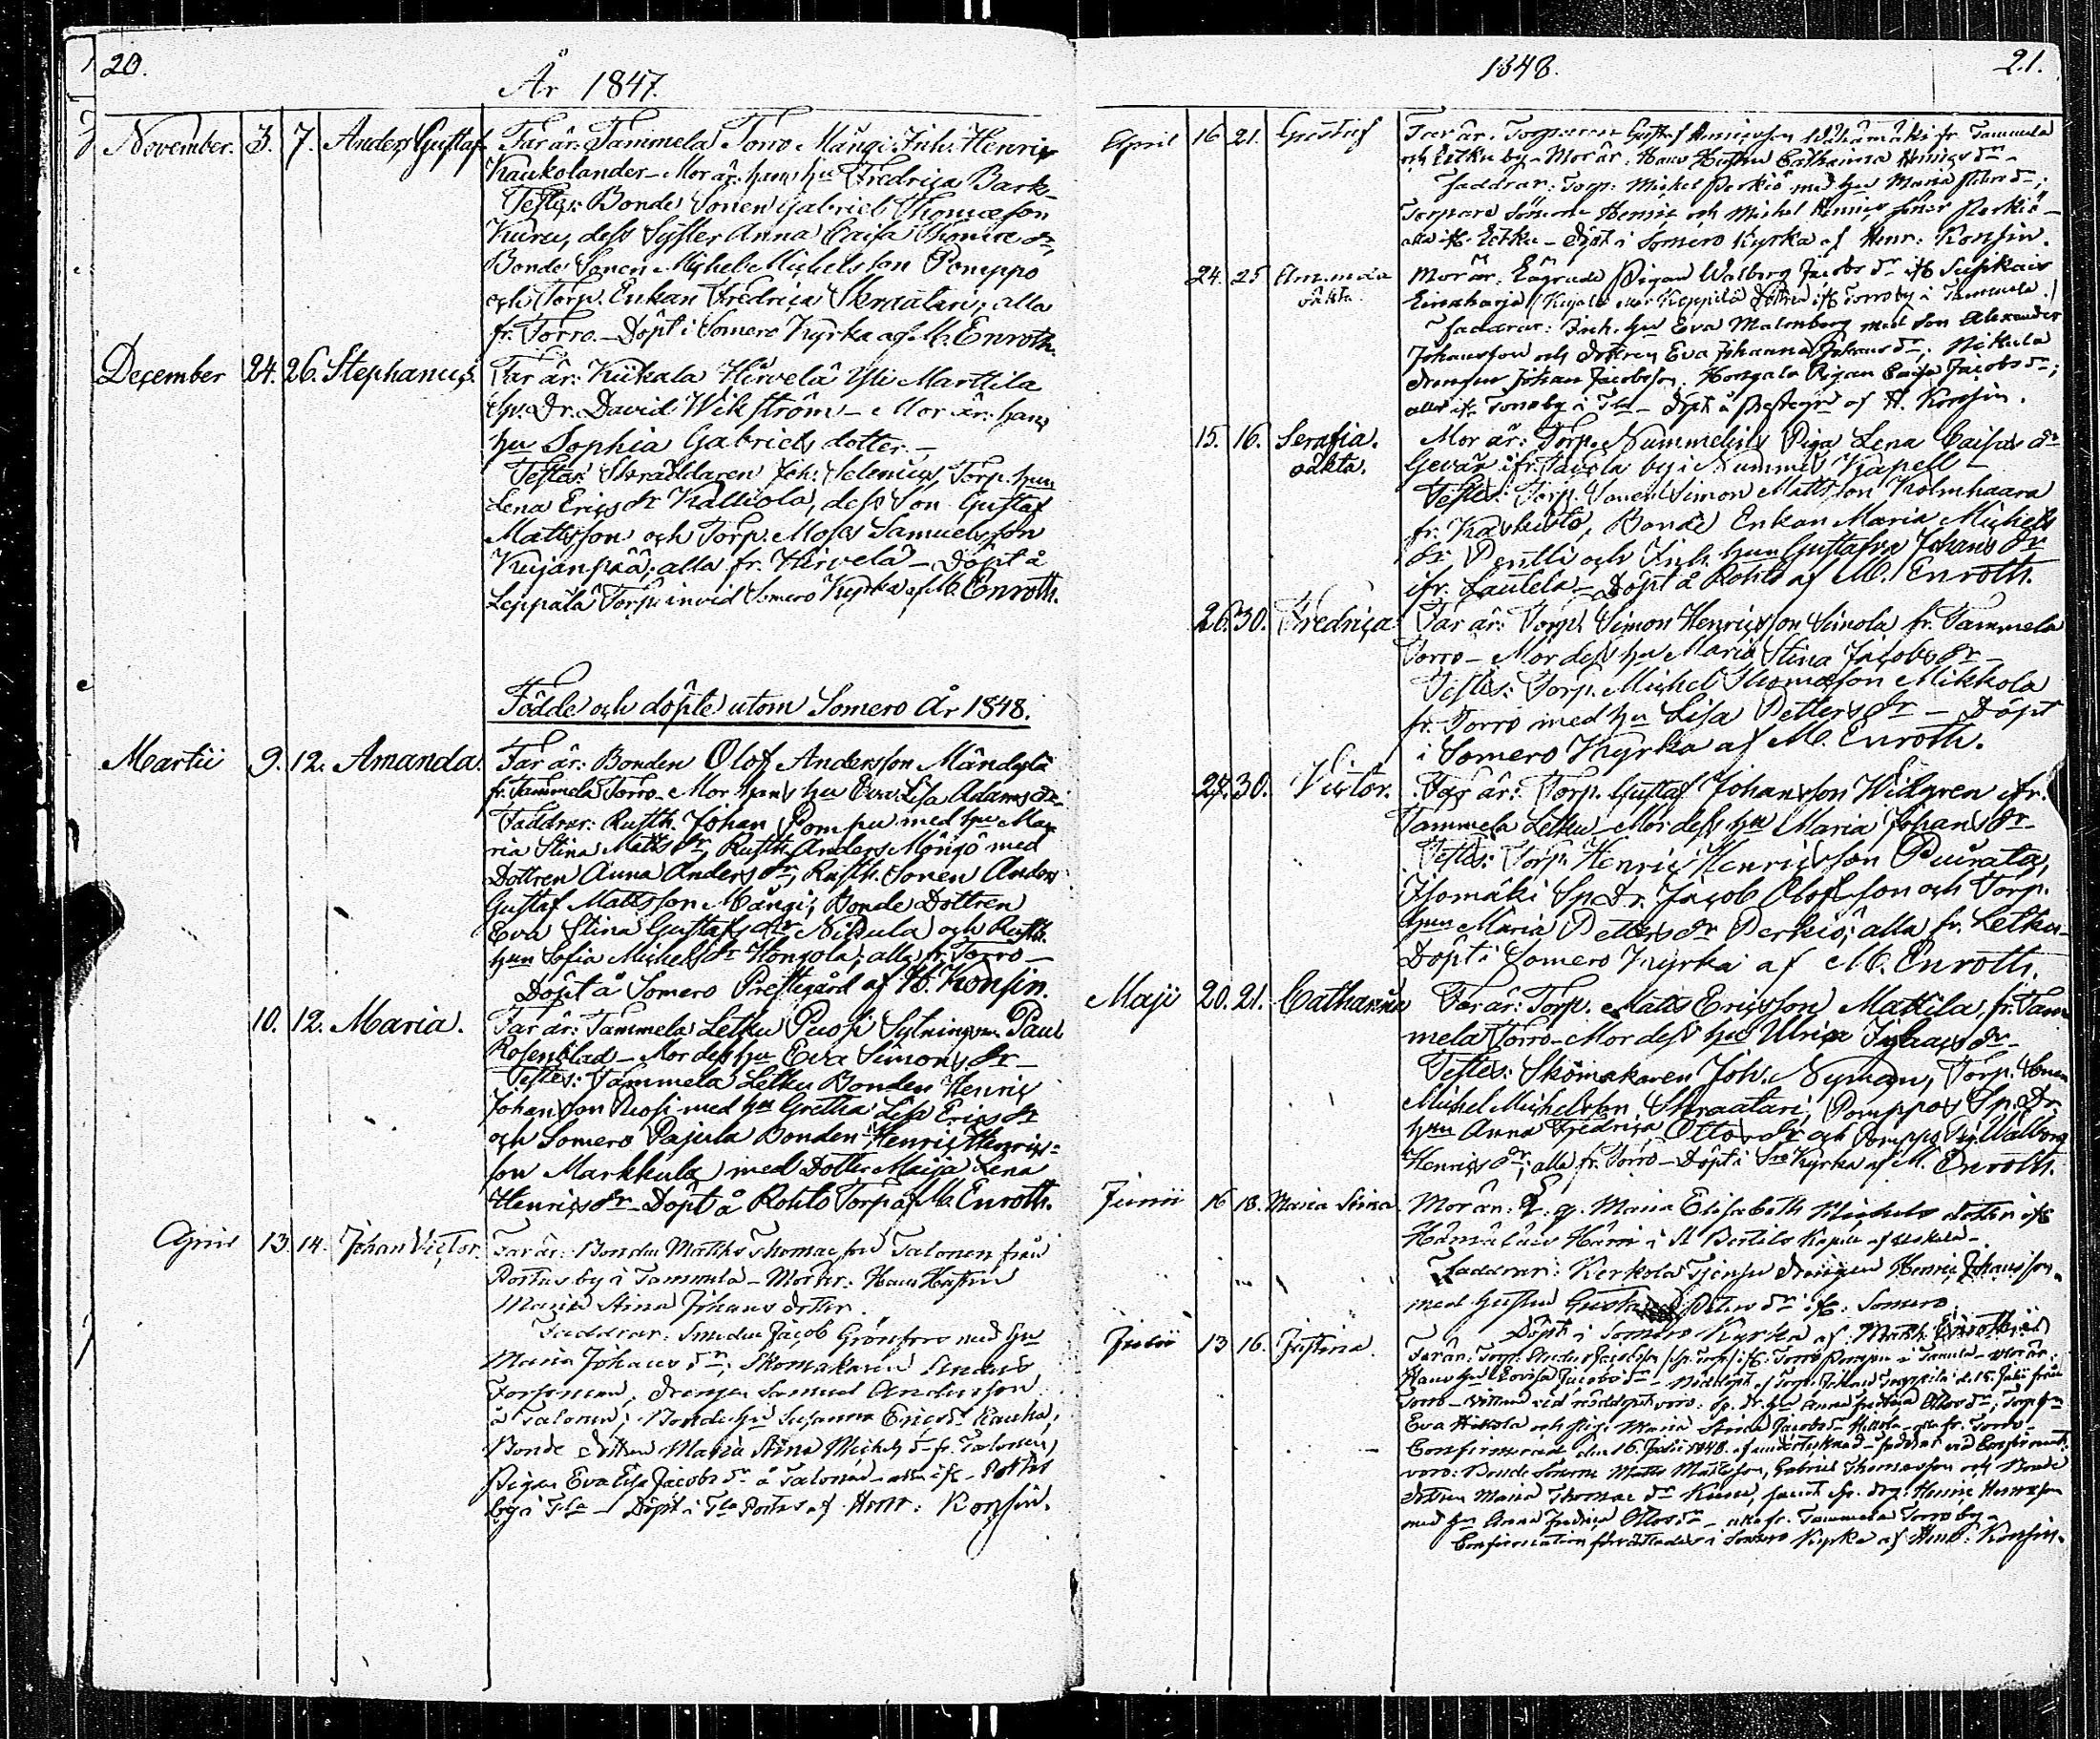 20.
År 1847.
November. 3. 7. Anders Gustaf. Far är: Tammela Torro Mångi Inh. Henric
Kaukolander – Mor är: hans hu Fredrica Bark –
Testes: Bonde Sonen Gabriel Thomæson
Kuru, dess Syster Anna Caisa Thomæ dr,
Bonde Sonen Michel Michelsson Pomppo
och Torp. Enkan Fredrica Skraatari; alla
fr. Torro. – Döpt i Somero Kyrka af M. Enroth.
December 24. 26. Stephanus. Far är: Kiikala Hirvelä Yli Marttila
Sp. Dr. David Wikström – Mor är: hans
hu Sophia Gabriels dotter –
Testes: Skräddaren Joh: Selenius, Torp. hun
Lena Erics dr Kalliola, dess Son Gustaf
Mattsson och Torp. Moses Samuelsson
Kujanpää; alla fr. Hirvelä – Döpt å
Leppälä Torp invid Somero Kyrka af M. Enroth.
Födde och döpte utom Somero År 1848.
Martii 9. 12. Amanda. Far är: Bonden Olof Andersson Mändylä
fr. Tammela Torro – Mor hans hu Eva Lisa Adams dr
Faddrar: Rusth. Johan Pompu med hu Ma
ria Stina Matts dr, Rusth. Anders Mångö med
Dottren Anna Anders dr; Rusth. Sonen Anders
Gustaf Mattsson Mångi; Bonde Dottren
Eva Stina Gustafs dr Nikula och Rusth.
hun Sofia Michels dr Hongola; alla fr. Torro –
Döpt å Somero Prestgård af H. Konsin.
10. 12. Maria. Far är: Tammela Letku Puosi Sytningsm. Paul
Rosenblad – Mor dess hu Eva Simons dr –
Testes: Tammela Letku Bonden Henric
Johansson Puosi med hu Gretha Lisa Erics dr
och Somero Pajula Bonden Henric Henrics=
son Markkula med Dotter Maija Lena
Henrics dr – Döpt å Rohto Torp af M. Enroth.
April 13 14. Johan Victor. Far är: Bonden Matths Thomæson Talonen från
Portas by i Tammela – Mor är: Hans Hustru
Maria Stina Johans dotter.
Faddrar: Smeden Jacob Grönfors med hu
Maria Johans dr; Skomakaren Anders
Forsman, drengen Samuel Andersson
å Talonen; Bonde hu Susanna Erics dr Rauha,
Bonde dottren Maria Stina Michels dr fr. Talonen,
Pigan Eva Lisa Jacobs dr å Talonen – alla ifr. Portas
by i Tla – Döpt i Tla Portas af Henr: Konsin.
1848. 21.
April 16 21. Gustaf Far är: Torparen Gustaf Henricsson fr. Tammela
och Letku by – Mor är: Hans Hustru Catharina Henrics dr –
Faddrar: Torp: Michel Perkiö med hu Maria Petters dr;
Torpare Sönerne Henric och Michel Perkiö –
alla ifr. Letku – Döpt i Somero Kyrka af Henr: Konsin.
24. 25 Amanda
oäkta. Mor är: Pigan Walborg Jacobs dr ifr
ifr Torro by i Tammela.
Faddrar: Inh. hu Eva Malenberg med Son Alexander
Johansson och dottren Eva Johanna Johans dr; Nikula
drengen Johan Jacobsson, Hongala Pigan Caisa Jacobs dr;
alla ifr. Torro by i Tla – Döpt å Prestgård af H. Konsin.
15. 16. Serafia.
oäkta. Mor är: Torp. Piga Lena Caisa dr
ifr. by i Nummis Kapell –
Testes: Torp. Sonen Simon Mattsson Kolmhaara
fr. Kaskisto, Bonde Enkan Maria Michels
dr Pentti och Inh. hun Gustafva Johans dr
ifr. Lautela – Döpt å Rohto af M. Enroth.
26. 30. Fredrica Far är: Torp. Simon Henricsson Simola fr. Tammela
Torro – Mor dess hu Maria Stina Jacobs dr –
Testes: Torp. Michel Thomæson Mikkola
fr. Torro med hu Lisa Petters dr – Döpt
i Somero Kyrka af M. Enroth.
27. 30. Victor. Far är: Torp. Gustaf Johansson Widgren ifr.
Tammela Letku – Mor dess hu Maria Johans dr –
Testes: Torp. Henric Henricsson Puirata,
Isomäki Sp. Dr. Jacob Olofsson och Torp.
hun Maria Petters dr Perkiö; alla fr. Letku –
Döpt i Somero Kyrka af M. Enroth.
Maji 20. 21. Catharina Far är: Torp. Matts Ericsson Mattila, fr. Tam
mela Torro – Mor dess hu Ulrica Isaacs dr –
Testes: Skomakaren Joh. Nyman, Torp. Sonen
Michel Michelsson Skraatari, Pomppos Sp. Dr.
hun Anna Fredrica Ottos dr och Pomppos Pig. Walborg
Henrics dr; alla fr. Torro – Döpt i Sro Kyrka af M. Enroth.
Junii 16 18. Maria Stina Mor är: Maria Elisabeth Michels dotter ifr
i St Bertils Kapell af Uskela –
Faddrar: Kerkola drengen Henric Johansson
med Hustru Petters dr ifr. Somero.
Döpt i Somero Kyrka af Math. Enroth
Julii 13 16. Justina. Far är: Torp: ifr. Torro i Tamela – Mor är:
Hans hu Lovisa Jacobs dr – Nöddöpt af d. 15. Julii från
Torro – Vittnen vid nöddopet voro: Sp. dr. hu Anna Fredrica Ottos dr; Torp hu
Eva Mikkola och Pig. Maria Stina Jacobs dr alla fr. Torro –
Confirmerad den 16. Julii 1848. af undertecknad – Faddrar vid Confirmat.
voro: Bonde Sönerne Matts Mattsson, Gabriel Thomasson och Bonde
dottren Maria Thomæ dr Kuru, samt Sp. drg: Henric Henricsson
med hu Anna Fredrica Ottos dr – alla fr. Tammela Torro by –
Confirmation förrättades i Somero Kyrka af Henr: Konsin.